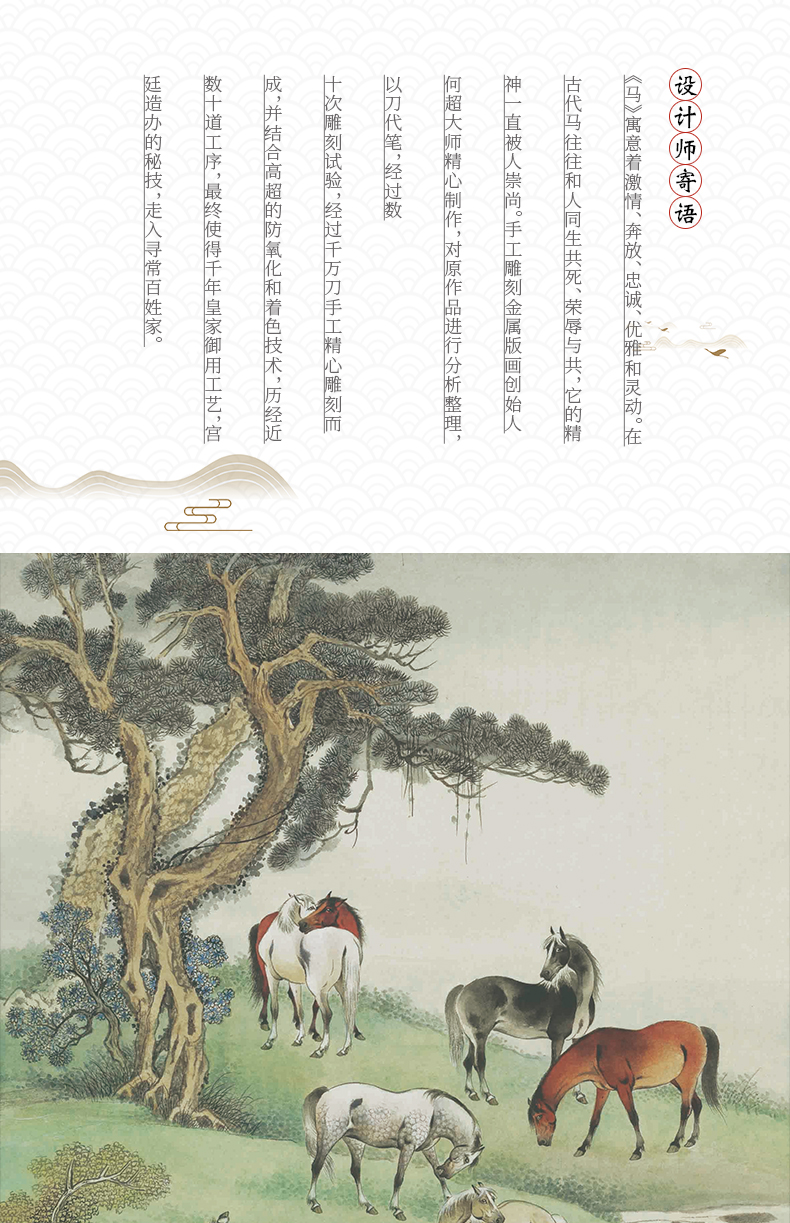 设计师寄语
《马》寓意着激情、奔放、忠诚、优雅和灵动。在
古代马往往和人同生共死、荣辱与共，它的精
神一直被人崇尚。手工雕刻金属版画创始人
何超大师精心制作，对原作品进行分析整理，
以刀代笔，经过数
十次雕刻试验，经过千万刀手工精心雕刻而
成，并结合高超的防氧化和着色技术，历经近
数十道工序，最终使得千年皇家御用工艺，宫
廷造办的秘技，走入寻常百姓家。